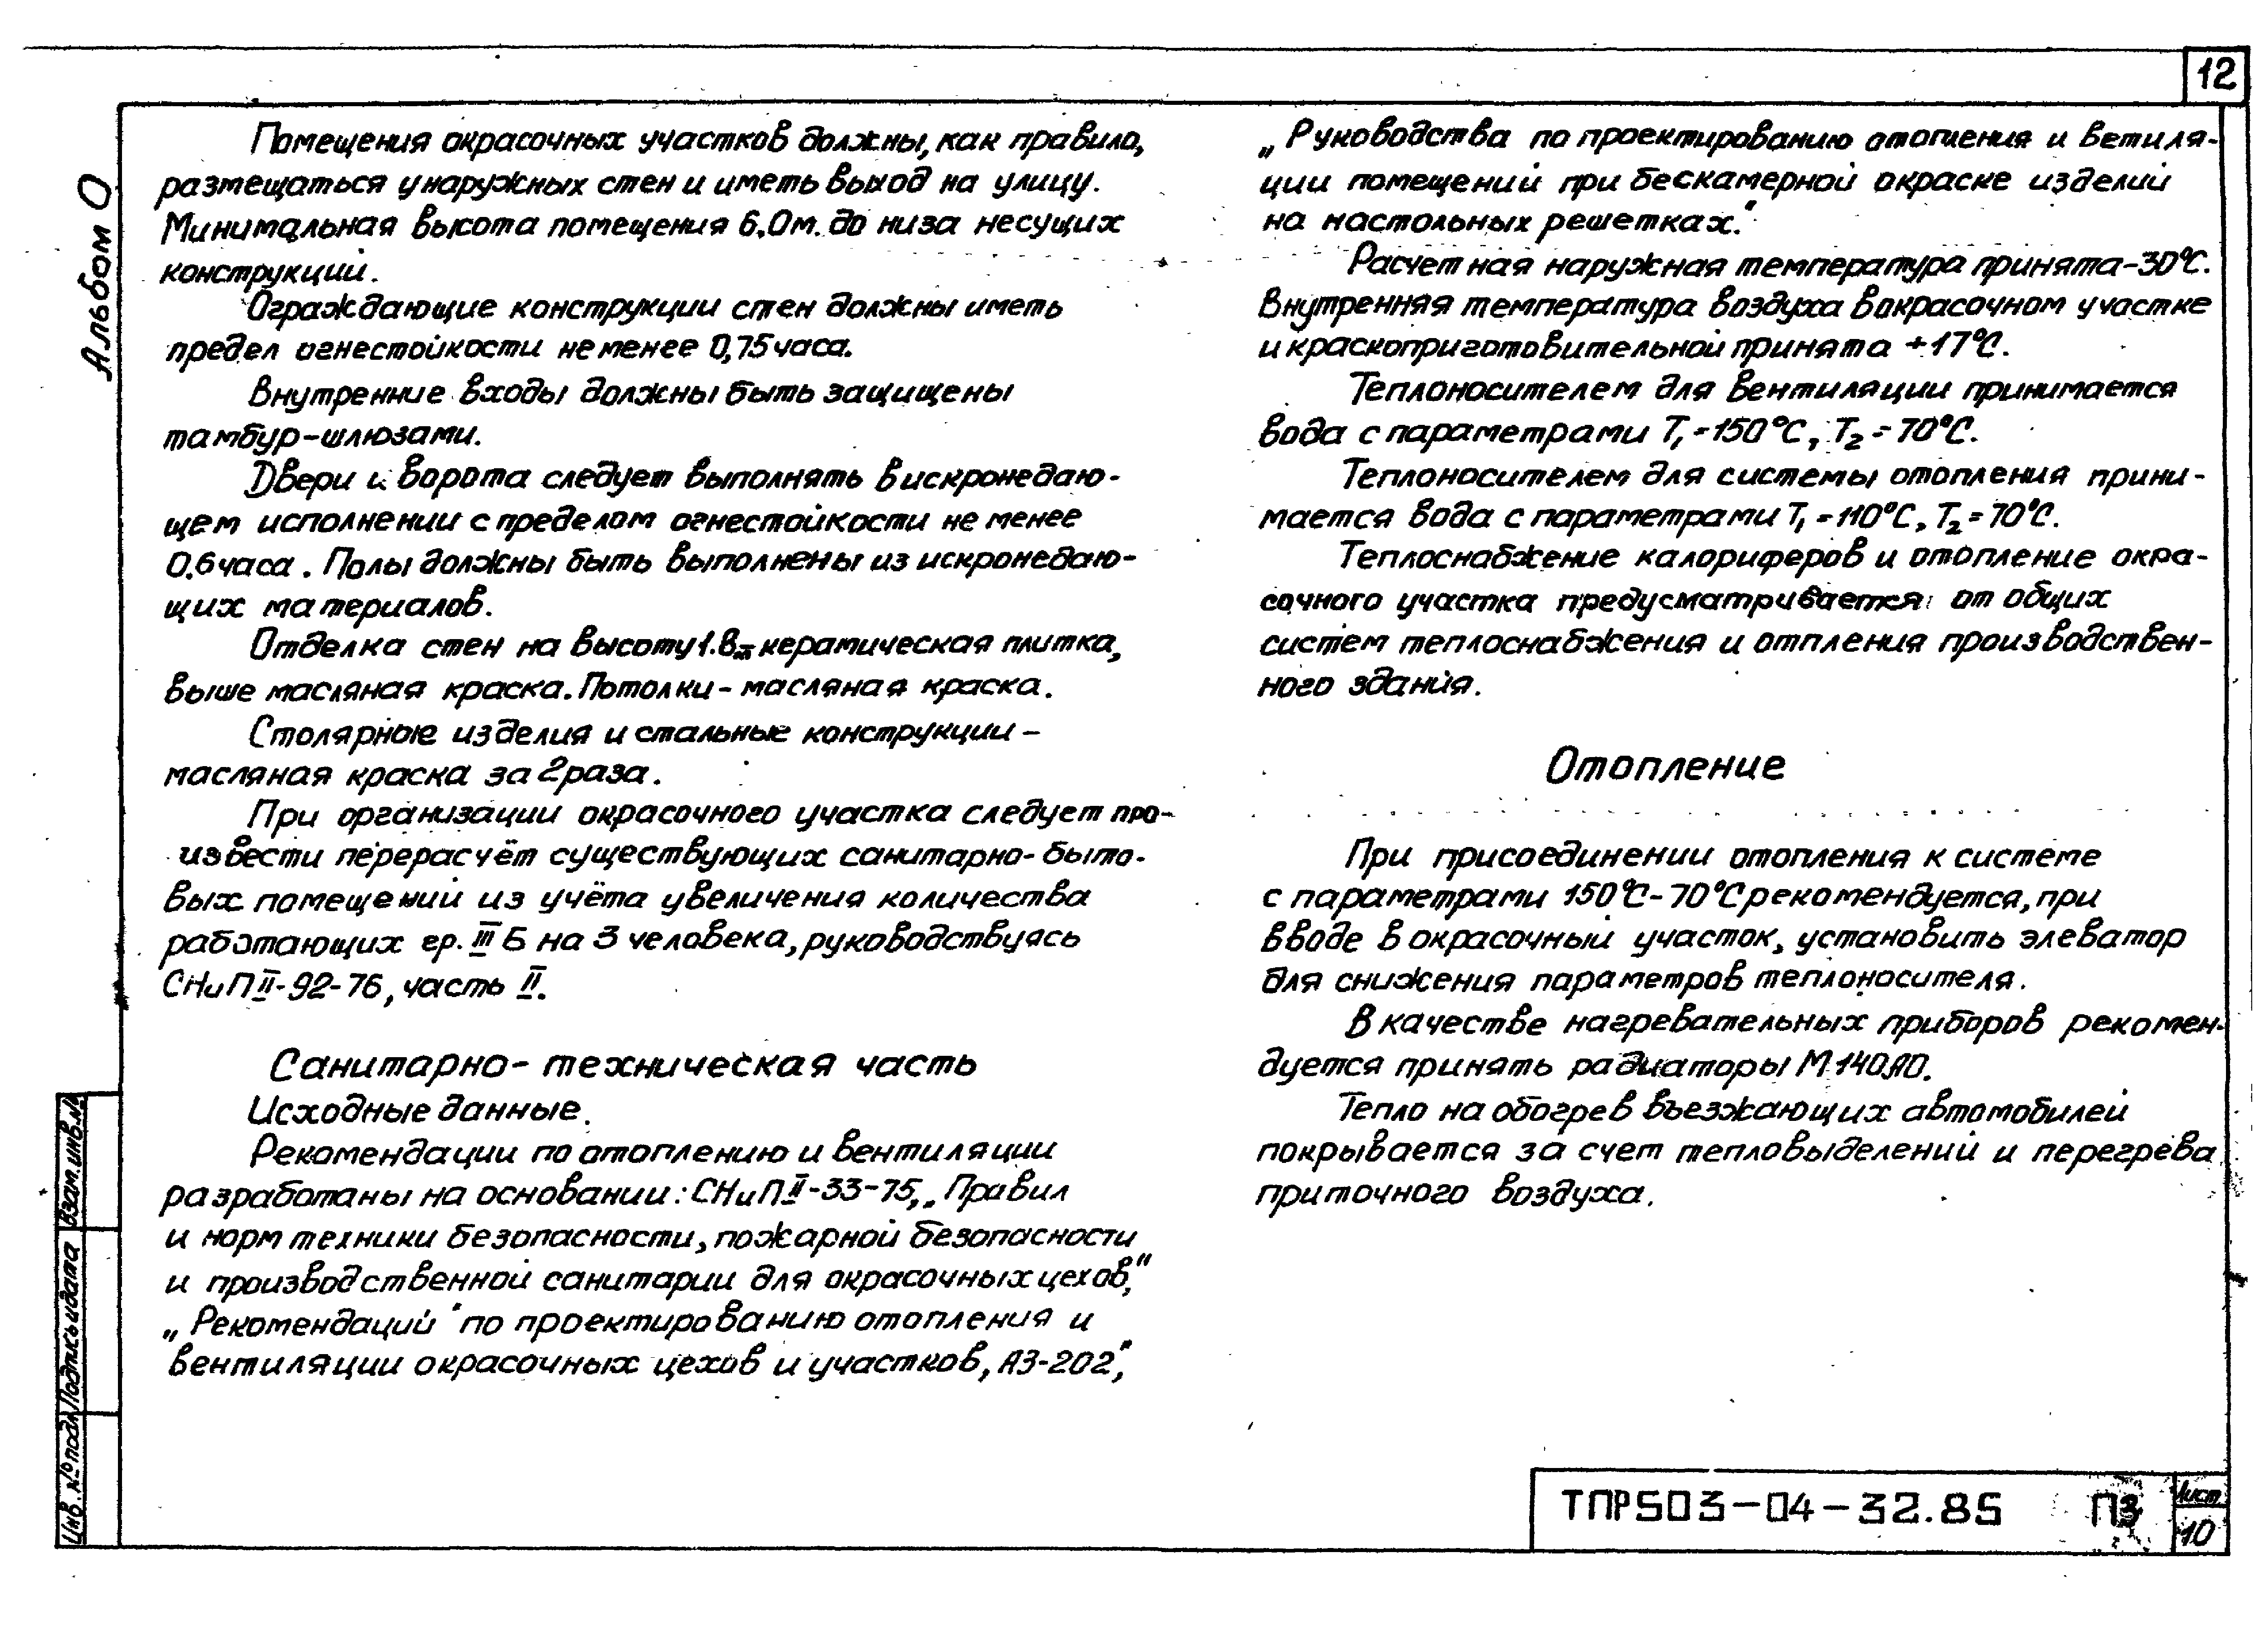 12
Альбом 0
Помещения окрасочных участков должны, как правило,
размещаться у наружных стен и иметь выход на улицу.
Минимальная высота помещения 6,0м. до низа несущих
конструкции.
Ограждающие конструкции стен должны иметь
предел огнестойкости не менее 0,75 часа.
Внутренние входы должны быть защищены
тамбур-шлюзами.
Двери и ворота следует выполнять в искронедаю-
щем исполнении с пределом огнестойкости не менее
0,6 часа. Полы должны быть выполнены из искронедаю-
щих материалов.
Отделка стен на высоту 1.8м керамическая плитка,
выше масляная краска. Потолки - масляная краска.
Столярные изделия и стальные конструкции -
масляная краска за 2 раза.
При организации окрасочного участка следует про-
извести перерасчёт существующих санитарно-быто-
вых помещений из учёта увеличения количества
работающих гр. III Б на 3 человека, руководствуясь
СНиП II-92-76, часть II.
Санитарно-техническая часть
Исходные данные.
Рекомендации по отоплению и вентиляции
разработаны на основании: СНиП II-33-75, „Правил
и норм техники безопасности, пожарной безопасности
и производственной санитарии для окрасочных цехов",
„Рекомендаций" по проектированию отопления и
вентиляции окрасочных цехов и участков, АЗ-202",
„Руководства по проектированию отопления и ветиля-
ции помещений при бескамерной окраске изделий
на настольных решетках."
Расчетная наружная температура принята -30°С.
Внутренняя температура воздуха в окрасочном участке
и краскоприготовительной принята +17°С.
Теплоносителем для вентиляции принимается
вода с параметрами Т₁=150°С, Т₂=70°С.
Теплоносителем для системы отопления прини-
мается вода с параметрами Т₁=110°С, Т₂=70°С.
Теплоснабжение калориферов и отопление окра-
сочного участка предусматривается от общих
систем теплоснабжения и отпления производствен-
ного здания.
Отопление
При присоединении отопления к системе
с параметрами 150°С-70°С рекомендуется, при
вводе в окрасочный участок, установить элеватор
для снижения параметров теплоносителя.
В качестве нагревательных приборов рекомен-
дуется принять радиаторы М 140 АО.
Тепло на обогрев въезжающих автомобилей
покрывается за счет тепловыделений и перегрева
приточного воздуха.
Взам. инв. №
Подпись и дата
Инв. № подл.
ТПР503-04-32.85 ПЗ
Лист
10